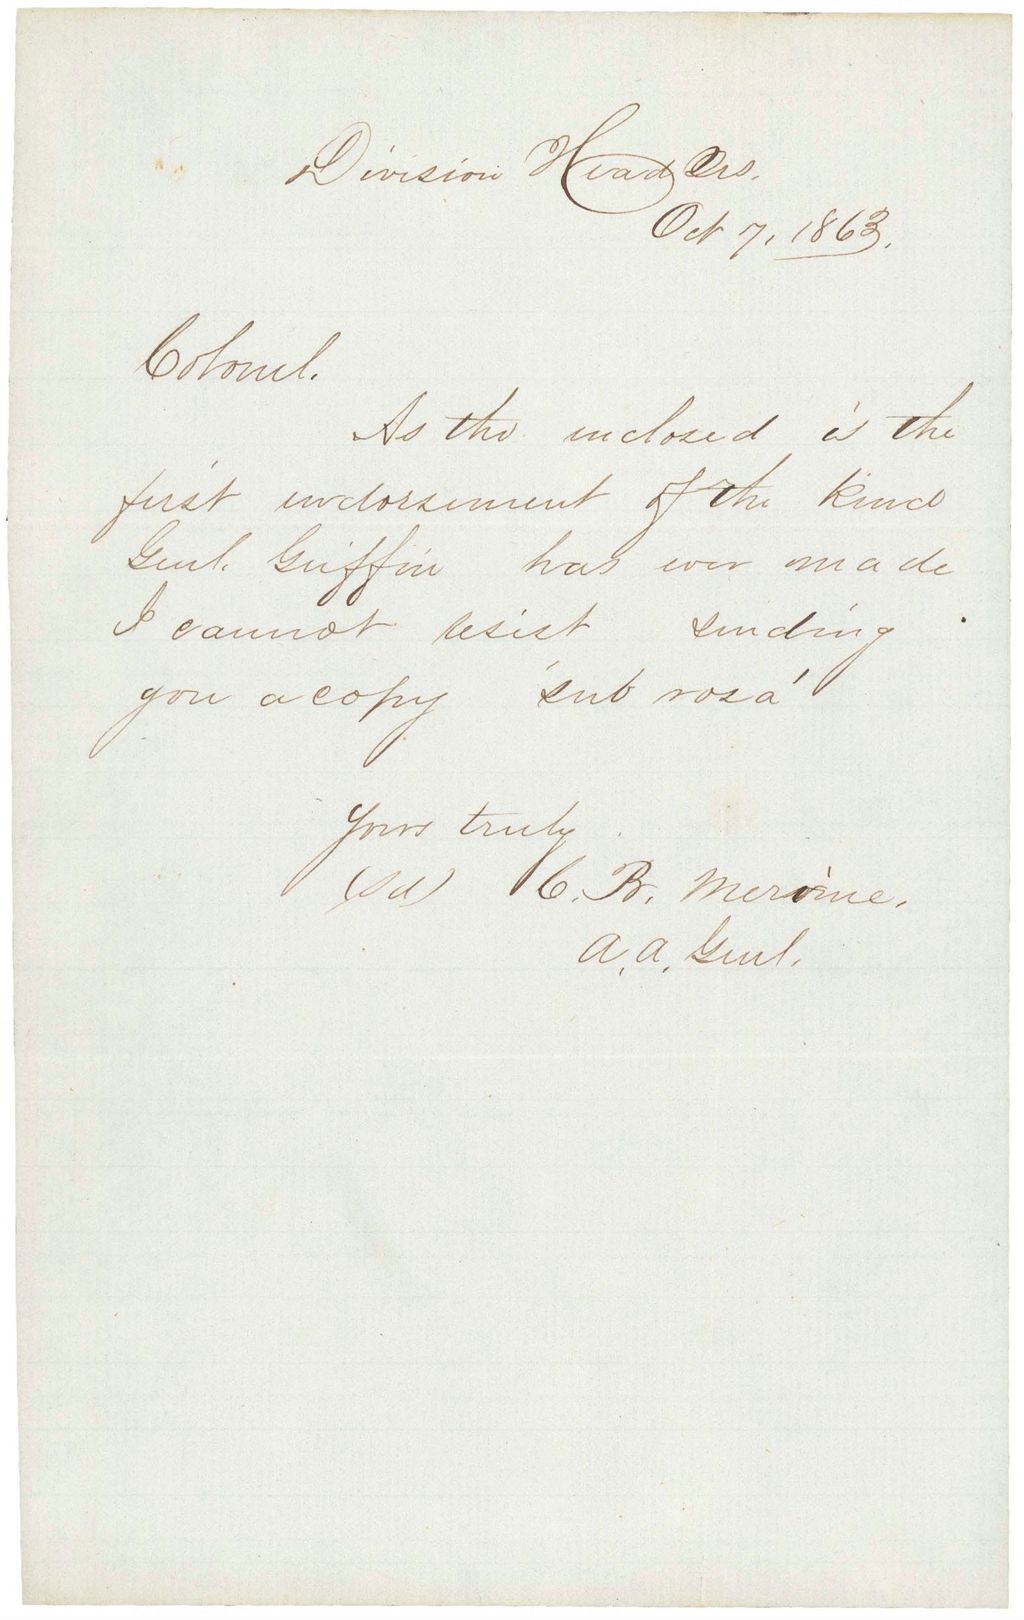 Division Head Qrs.
Oct 7, 1863.
Colonel.
As the inclosed is the
first endorsement of the kind
Genl. Griffin has ever made
I cannot resist sending
you a copy 'sub rosa'
Yours truly
(Sd) C. B. Mervine.
A. A. Genl.